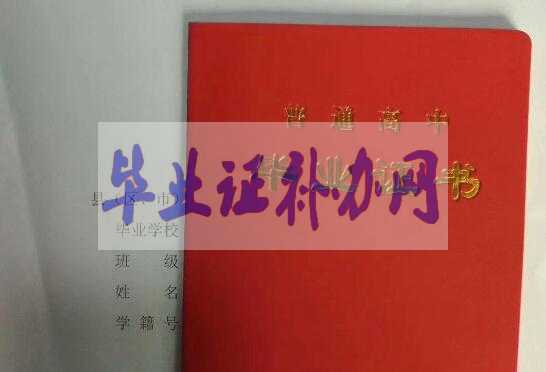 普通高中
毕业证书
毕业证补办网
县（区、市）
毕业学校
班级
姓名
学籍号